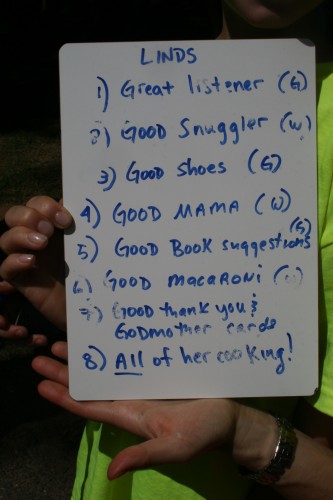 LINDS
1) Great listener (G)
2) GOOD Snuggler (W)
3) GOOD Shoes (G)
4) GOOD MAMA (W)
5) GOOD BOOK suggestions (G)
6) GOOD macaroni
7) GOOD thank you &
GODmother cards
8) All of her cooking!